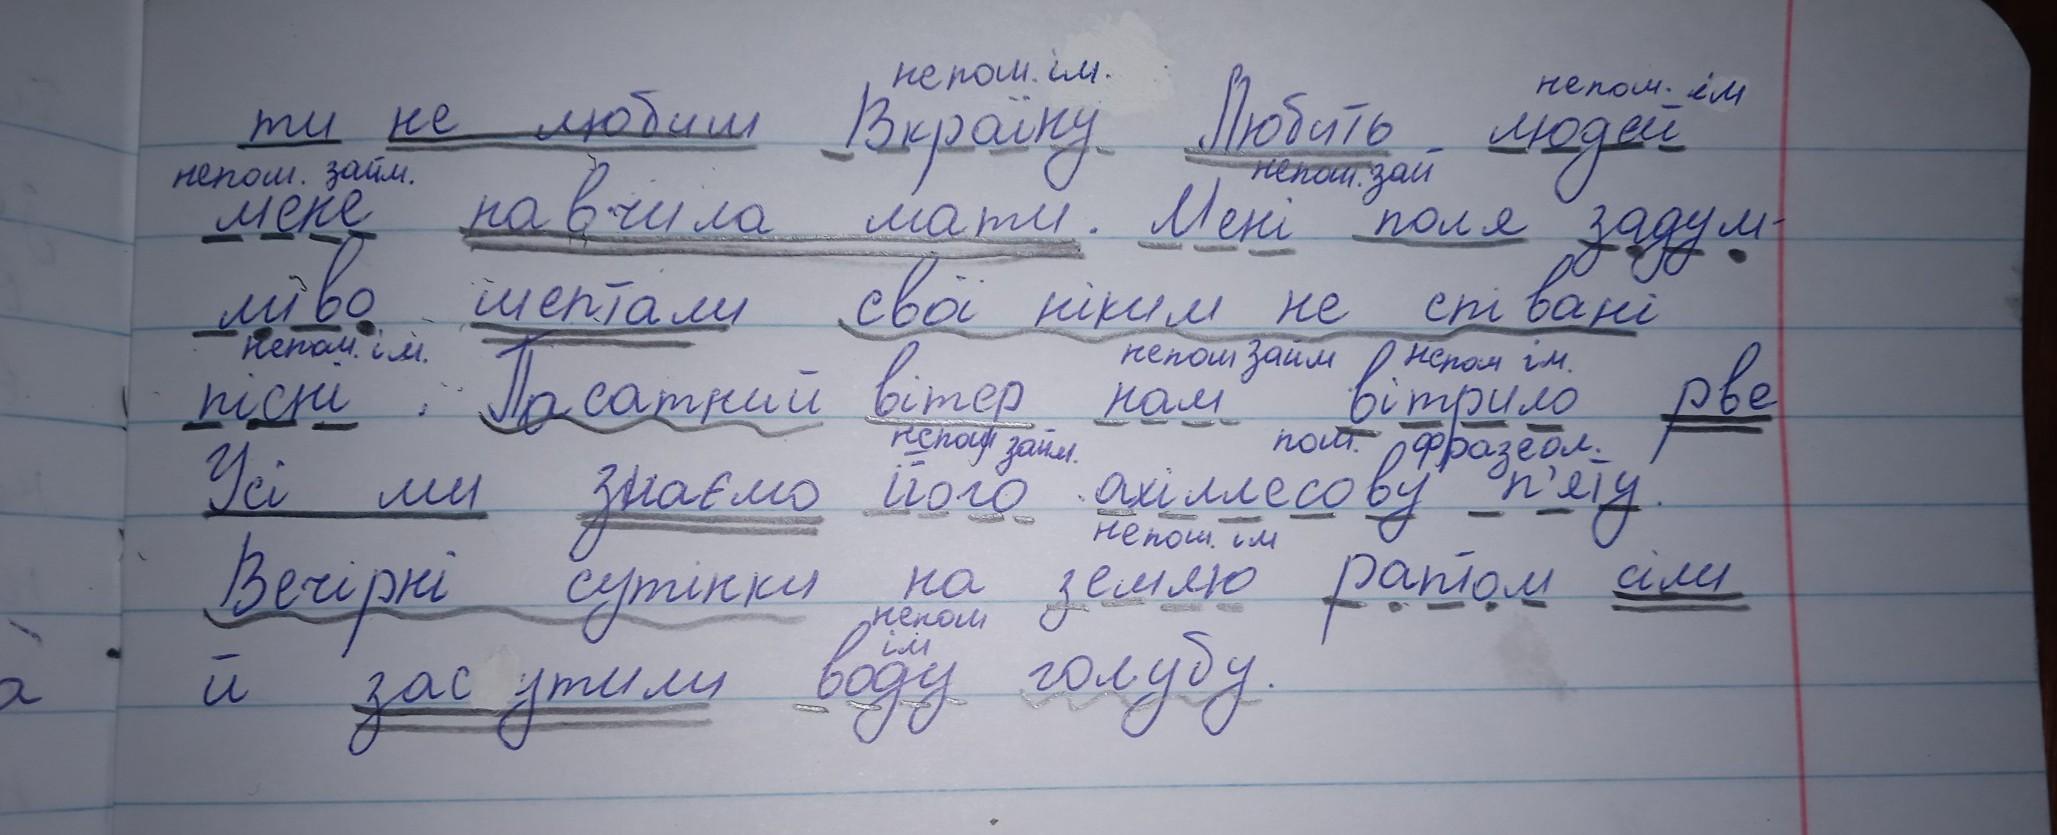 непом. ім. непом. ім
ти не любиш Вкраїну Любить людей
непом. займ. непом. зай
мене навчила мати. Мені поля задум-
ливо шептали свої ніким не співані
непом. ім. непом займ непом ім.
пісні. Пасатний вітер нам вітрило рве
непом займ. пом. фразеол.
Усі ми знаємо його ахіллесову п'яту.
непом. ім
Вечірні сутінки на землю раптом сіли
непом ім
й засутили воду голубу.